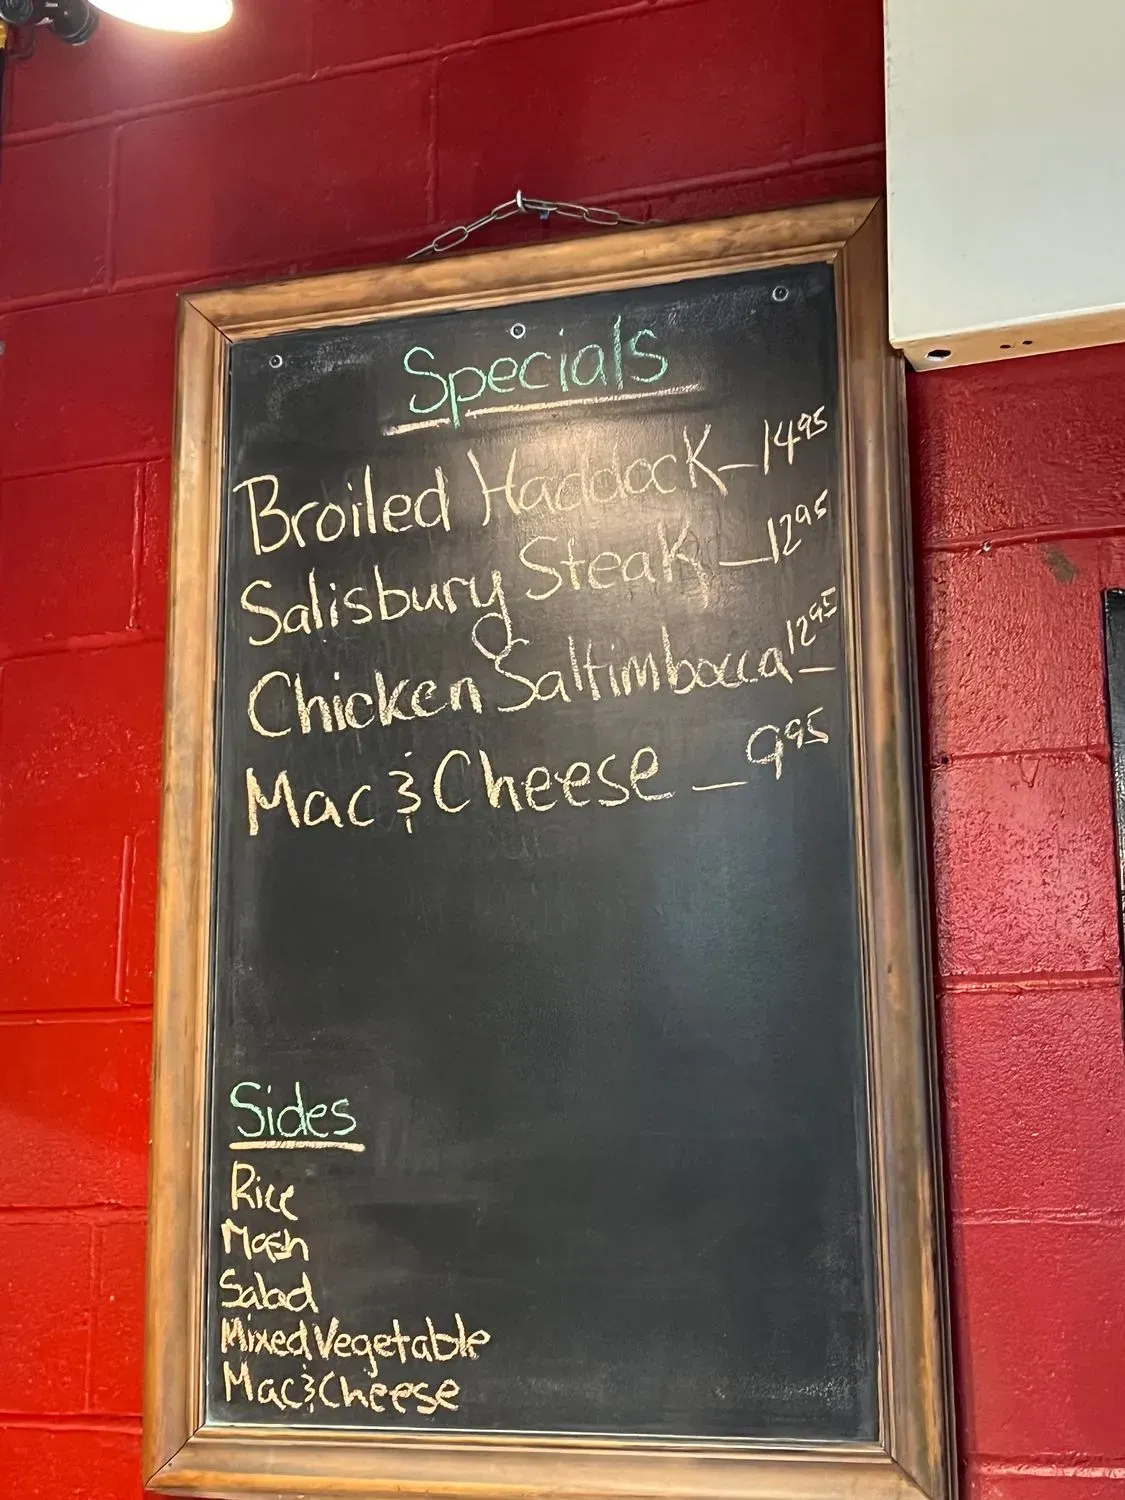 Specials
Broiled Haddock - 14 95
Salisbury Steak - 12 95
Chicken Saltimbocca - 12 95
Mac & Cheese - 9 95
Sides
Rice
Mash
Salad
Mixed Vegetable
Mac & Cheese